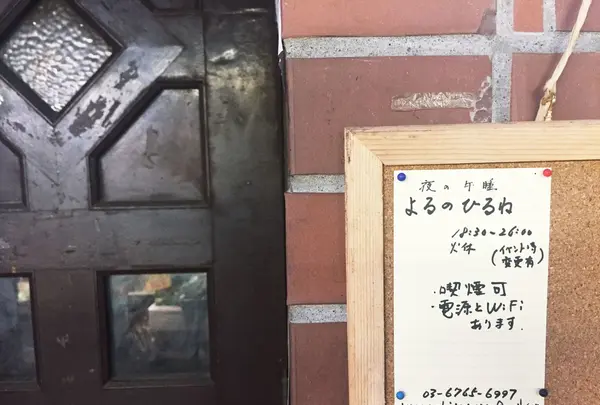 夜の午睡
よるのひるね
18:30~26:00
火休
(イベント時
変更有)
・喫煙可
・電源とWiFi
あります.
03-6765-6997